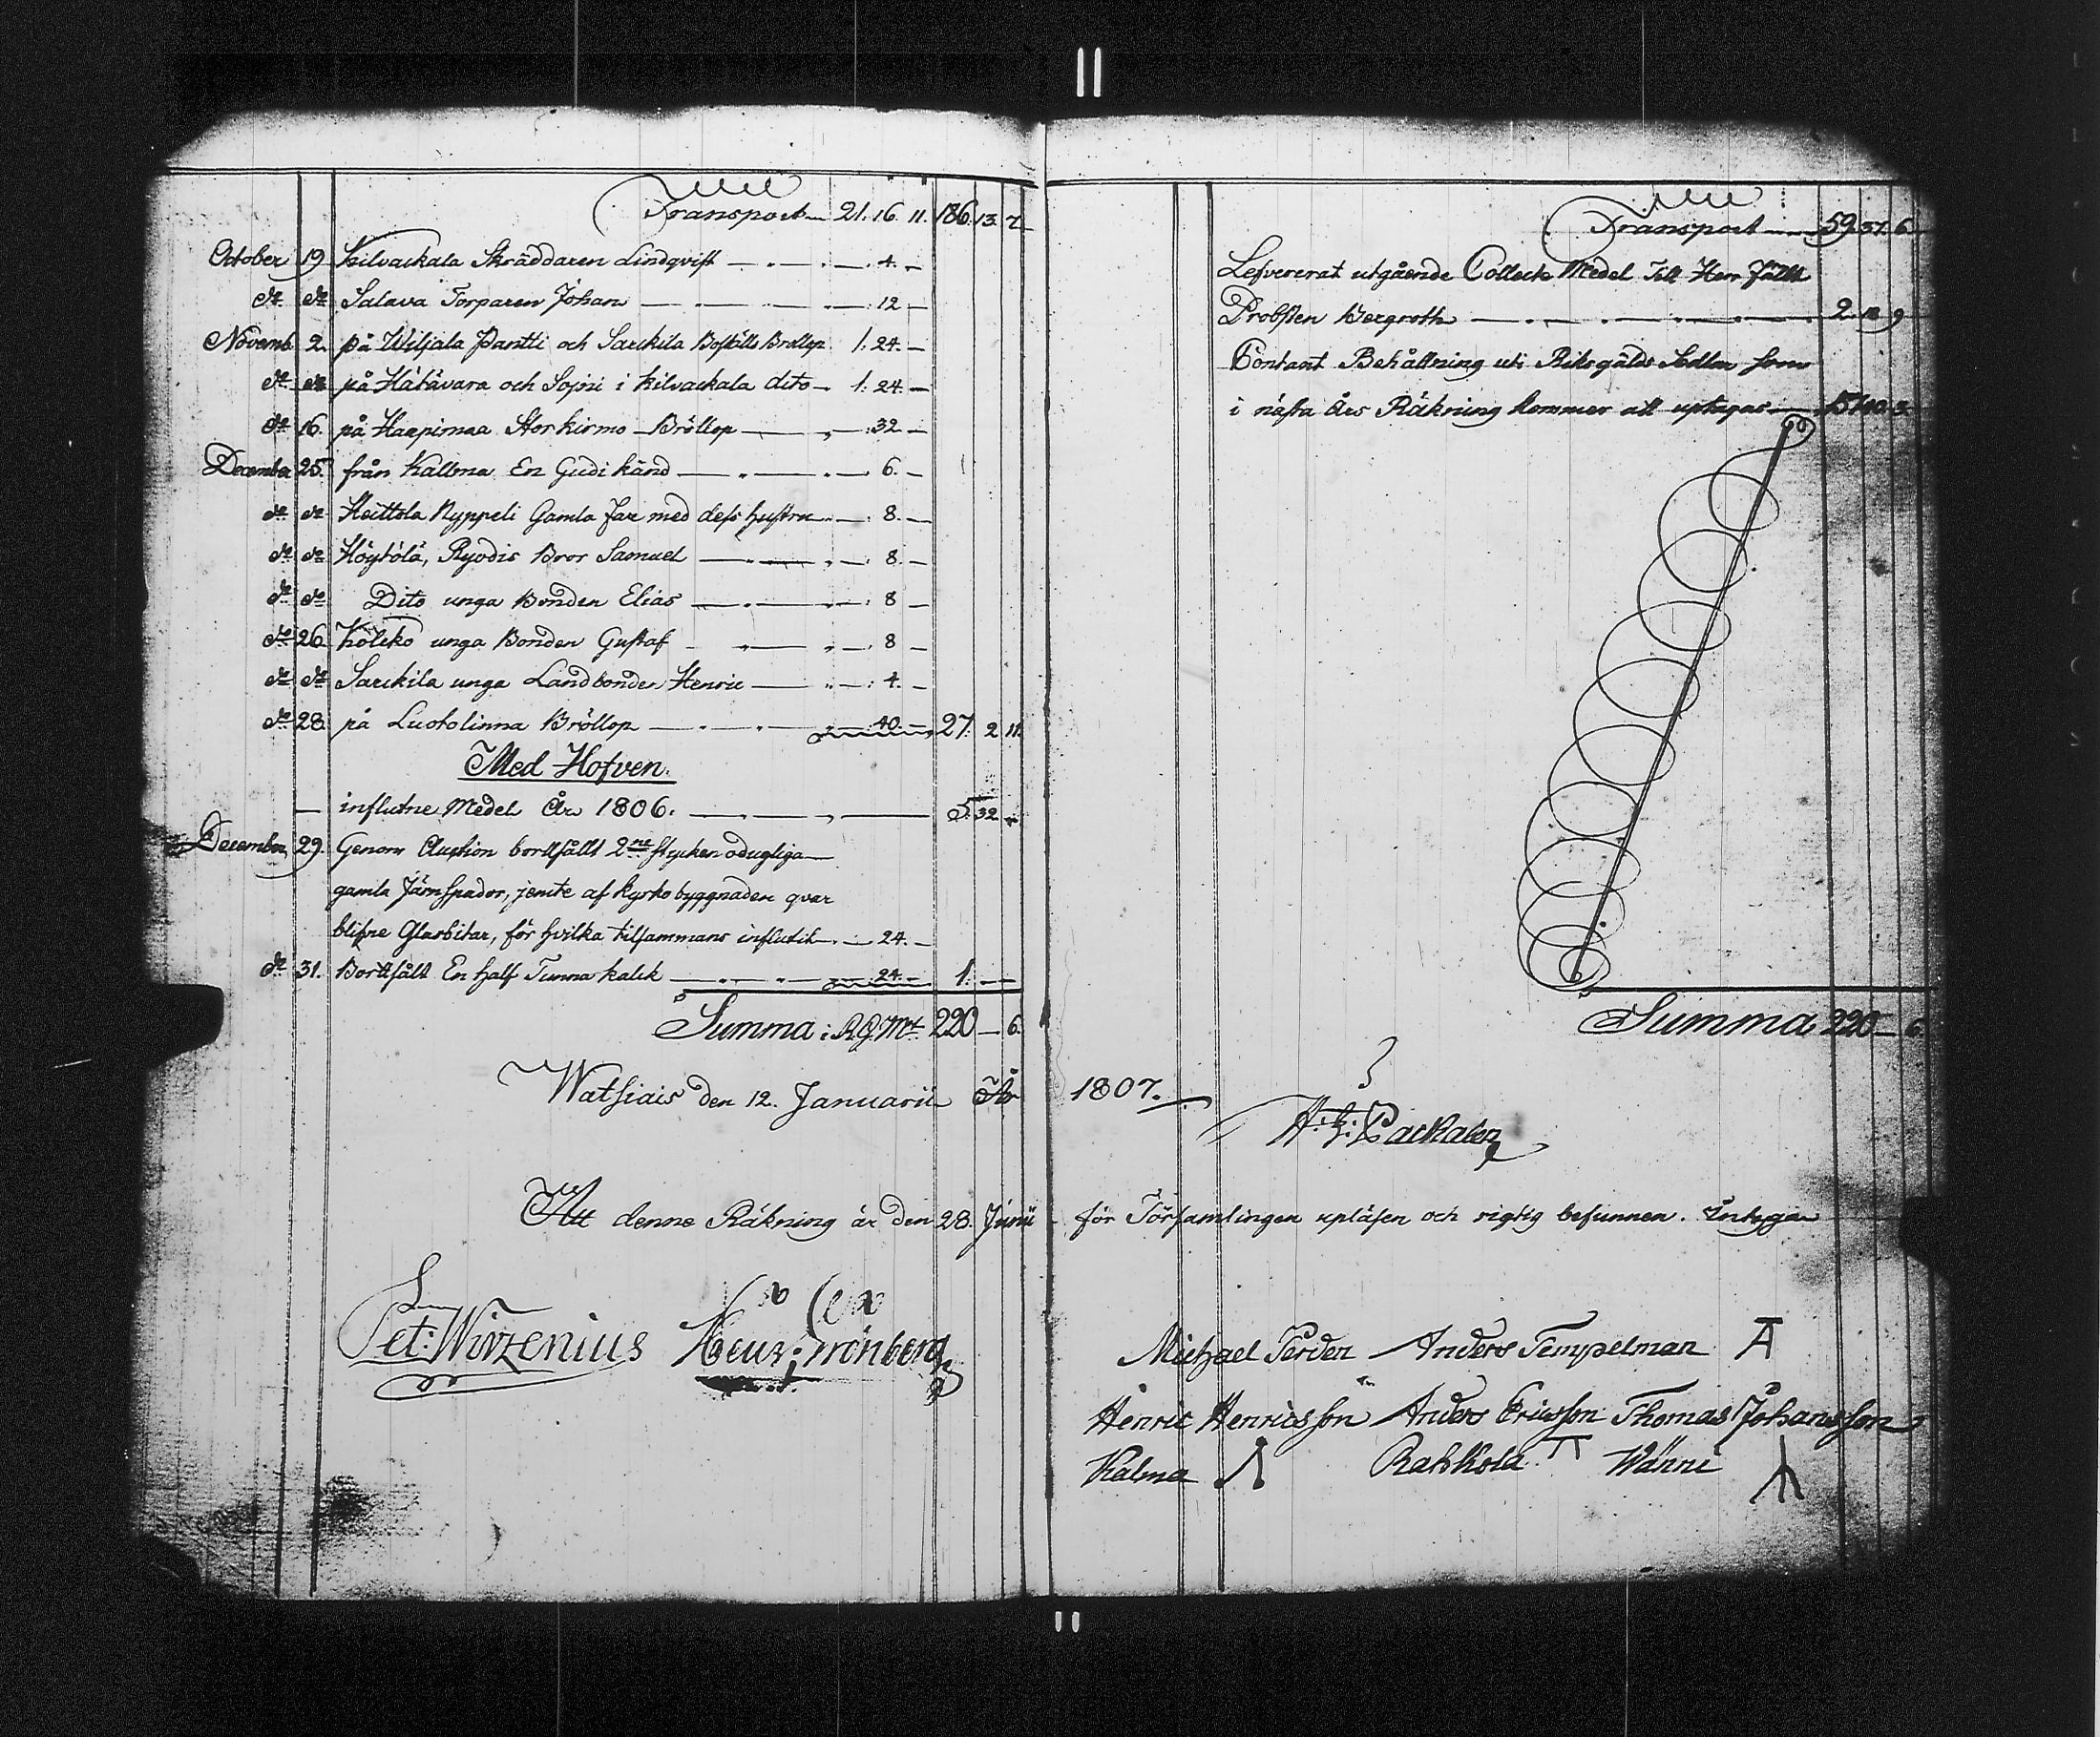 Transport 21. 16. 11. 186. 13. 7.
October 19 Kilvackala Skräddaren Lindqvist 4. —
do do Salava Torparen Johan 12 —
Novemb. 2. på Wiljala Pantti och Sarckila Boställs Bröllop 1. 24. —
do do på Hätävara och Sopri i Kilvackala dito — 1. 24. —
do 16. på Haapimaa Storkirmo Bröllop 32 —
December 25. från Kallma En Gudi känd 6. —
do do Heittola Nyppeli Gamla Far med dess hustru 8. —
do do Höytölä, Ryodis Bror Samuel 8. —
do do Dito unga Bonden Elias 8 —
do 26 Kölckö unga Bonden Gustaf 8 —
do do Sarckila unga Landbonden Henric 4. —
do 28. på Luotolinna Bröllop 40. — 27. 2 11.
Med Hofven.
— influtne Medel År 1806. 5. 32 —
December 29. Genom Auction bortsålt 2ne stycken odugliga
gamla Järnspador, jemte af kyrkobyggnaden qvar
blifne Glasbitar, för hvilka tilsammans influtit 24. —
do 31. Bortsålt En half Tunna kalck 24. — 1. — —
Summa i RGMt 220 — 6.
Watsiais den 12. Januarii År
Att denne Räkning är den 28. Junii
Pet: Wirzenius
Transport 59. 37. 6
Lefvererat utgående Collect Medel Till Herr
Probsten Bergroth 2. 12 9
Contant Behållning uti Riksgälds Sedlar som
i nästa Års Räkning kommer att uptagas
Summa 220 — 6.
1807.
Packalen
för Församlingen upläsen och rigtig befunnen. intyga
Michael Perden Anders Tempelman
Henric Henricsson Anders Ericsson Thomas Johansson
Kalma Rahkola Wänni